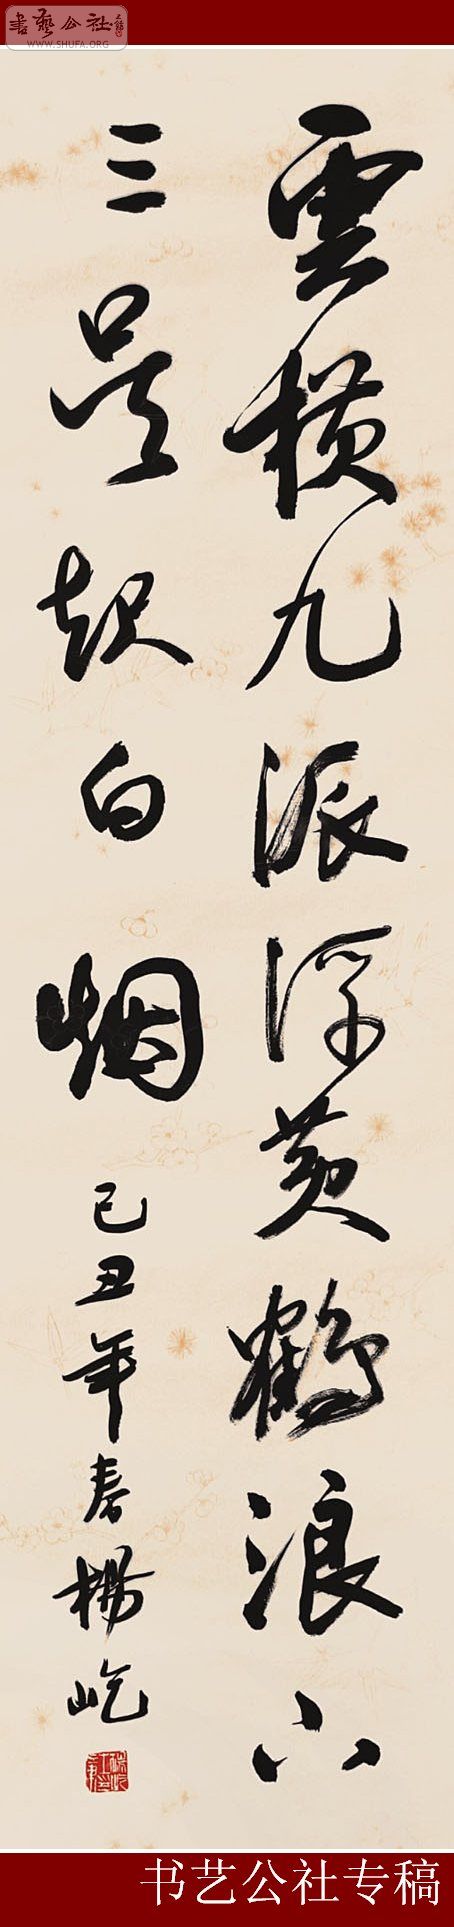 書藝公社
WWW.SHUFA.ORG
雲横九派浮黄鶴浪下
三吴起白烟
己丑年春楊屹
书艺公社专稿